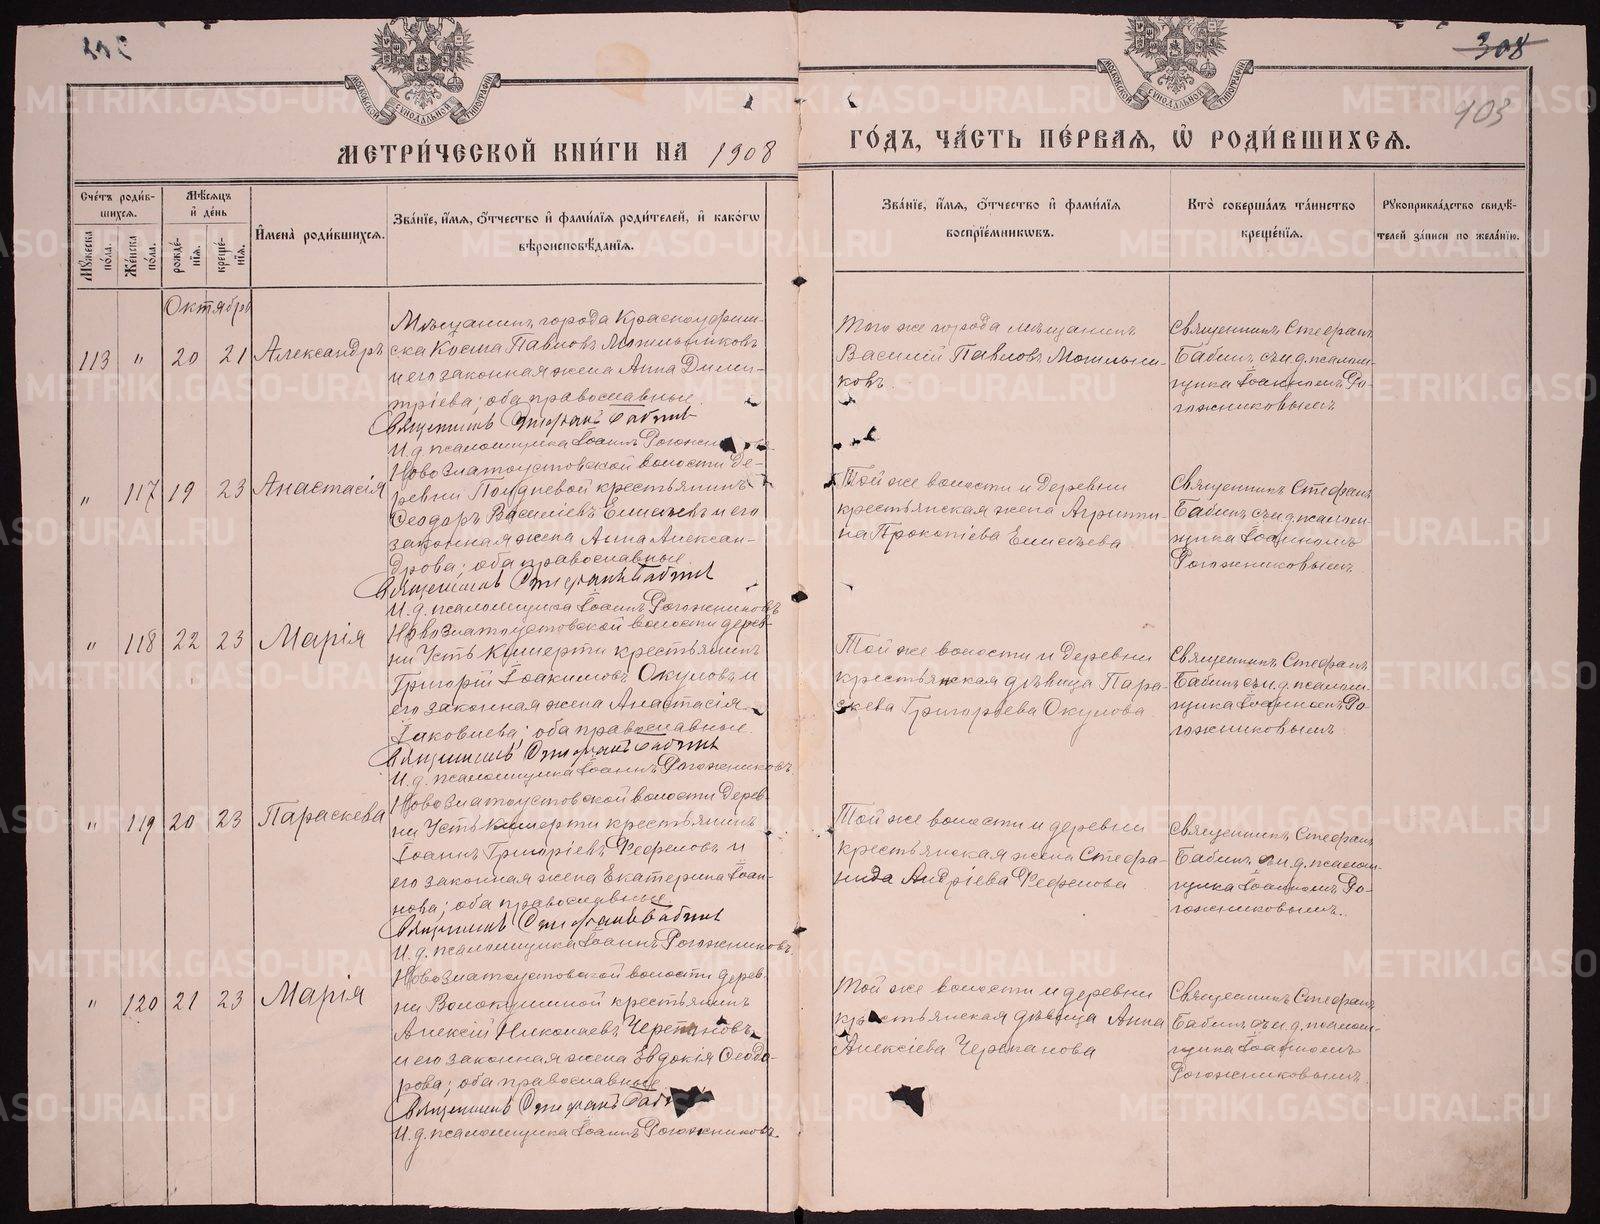 308
403
МЕТРИ́ЧЕСКОЙ КНИ́ГИ НА 1908
ГО́ДЪ, ЧА́СТЬ ПЕ́РВАЯ, Ѡ҆ РОДИ́ВШИХСЯ.
Сче́тъ роди́в-
шихся.
Мѣ́сяцъ
и҆ де́нь
И҆мена̀ роди́вшихся.
Зва́нїе, и҆́мя, ѻ҆́тчество и҆ фами́лїя роди́телей, и҆ како́гѡ
вѣроисповѣ́данїя.
Зва́нїе, и҆́мя, ѻ҆́тчество и҆ фами́лїя
воспрїе́мникѡвъ.
Кто̀ соверша́лъ та́инство
креще́нїя.
Рꙋкоприкла́дство свидѣ́-
телей за́писи по жела́нїю.
Мꙋ́жеска
по́ла.
Же́нска
по́ла.
рожде́-
нїя.
креще́-
нїя.
Октябрь
113 " 20 21 Александръ
Мѣщанинъ города Красноуфим-
ска Косма Павловъ Могильниковъ
и его законная жена Анна Дими-
тріева; оба православные.
Священникъ Стефанъ Бабинъ
И. д. псаломщика Іоаннъ Рогожников
Того же города мѣщанинъ
Василій Павловъ Могильни-
ковъ.
Священникъ Стефанъ
Бабинъ съ и. д. псалом-
щика Іоанномъ Ро-
гожниковымъ
" 117 19 23 Анастасія
Ново Златоустовской волости де-
ревни Полдневой крестьянинъ
Ѳеодоръ Василіевъ Елисѣевъ и его
законная жена Анна Алексан-
дрова; оба православные
Священникъ Стефанъ Бабинъ
И. д. псаломщика Іоаннъ Рогожниковъ
Той же волости и деревни
крестьянская жена Агриппи-
на Прокопіева Елисѣева
Священникъ Стефанъ
Бабинъ съ и. д. псалом-
щика Іоанномъ
Рогожниковымъ
" 118 22 23 Марія
Ново Златоустовской волости дерев-
ни Усть Кишерти крестьянинъ
Григорій Іоакимовъ Окуловъ и
его законная жена Анастасія
Іаковлева; оба православные.
Священникъ Стефанъ Бабинъ
И. д. псаломщика Іоаннъ Рогожниковъ
Той же волости и деревни
крестьянская дѣвица Пара-
скева Григорьева Окулова
Священникъ Стефанъ
Бабинъ съ и. д. псалом-
щика Іоанномъ Ро-
гожниковымъ
" 119 20 23 Параскева
Ново Златоустовской волости дерев-
ни Усть Кишерти крестьянинъ
Іоаннъ Григоріевъ Фефеловъ и
его законная жена Екатерина Іоан-
нова; оба православные
Священникъ Стефанъ Бабинъ
И. д. псаломщика Іоаннъ Рогожниковъ.
Той же волости и деревни
крестьянская жена Стефа-
нида Андріева Фефелова
Священникъ Стефанъ
Бабинъ съ и. д. псалом-
щика Іоанномъ Ро-
гожниковымъ.
" 120 21 23 Марія
Ново Златоустовской волости дерев-
ни Волокушиной крестьянинъ
Алексій Николаевъ Черепановъ
и его законная жена Евдокія Ѳеодо-
рова; оба православные
Священникъ Стефанъ Баб
И. д. псаломщика Іоаннъ Рогожниковъ.
Той же волости и деревни
крестьянская дѣвица Анна
Алексіева Черепанова
Священникъ Стефанъ
Бабинъ съ и. д. псалом-
щика Іоанномъ
Рогожниковымъ.
METRIKI.GASO-URAL.RU